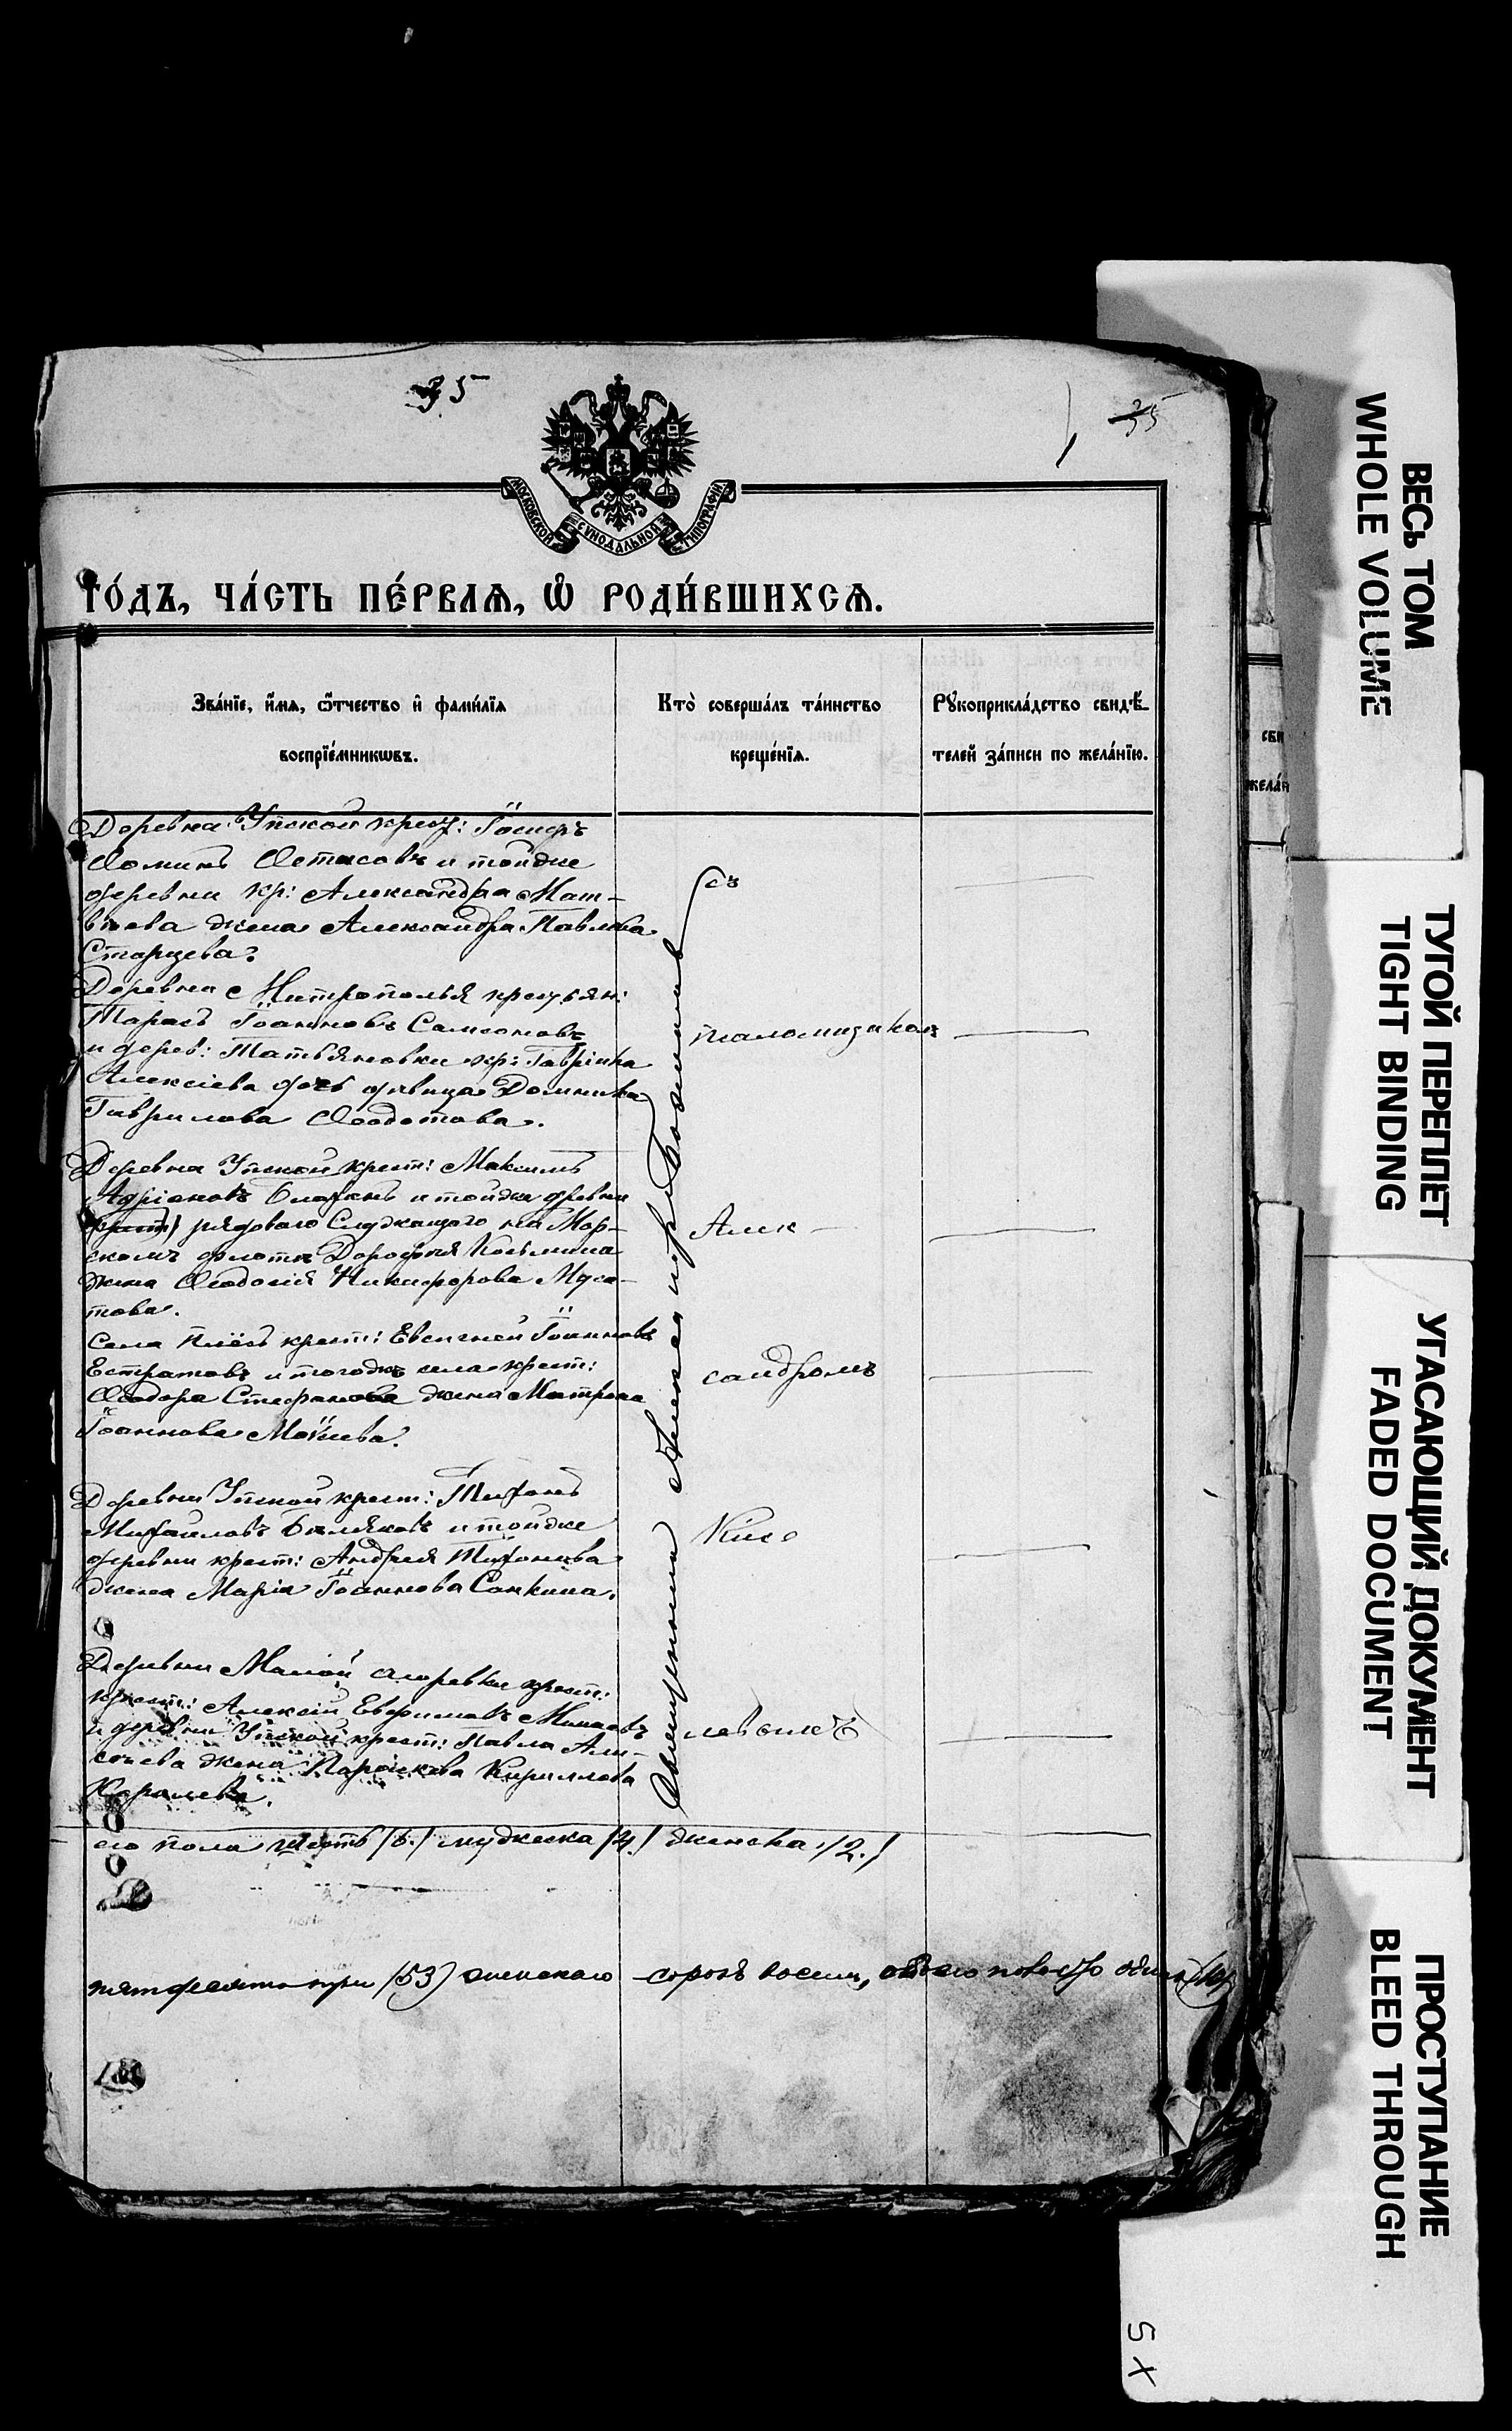 35
35
МОСКОВСКОЙ СѴНОДАЛЬНОЙ ТИПОГРАФІИ
ГО́ДЪ, ЧА́СТЬ ПЕ́РВАѦ, Ѡ҆ РОДИ́ВШИХСѦ.
Зва́нїе, и҆́мѧ, ѻ҆́тчество и҆ фами́лїѧ
воспрїе́мникѡвъ.
Кто̀ соверша́лъ та́инство
креще́нїѧ.
Рꙋкоприкла́дство свидѣ́-
телей за́писи по жела́нїю.
Деревни Упской крест: Іосифъ
Ѳоминъ и тойже
деревни кр: Александра Мат-
вѣева жена Александра Павлова
Старцева.
Деревни Митрополья крестьян:
Тарасъ Іоанновъ Самсоновъ
и дерев: Татьяновки кр: Гавріила
Алексіева дочь дѣвица Домника
Гаврилова Ѳеодотова.
Деревни Упской крест: Максимъ
Адріановъ и тойже деревни
рядоваго Служащаго на Мор-
скомъ флотѣ Дорофея Козьмина
жена Ѳеодосія Никифорова Муса-
това.
Села крест: Евсигней Іоанновъ
Естратовъ и тогожъ села крест:
Ѳеодора Стефанова жена Матрона
Іоаннова
Деревни Упской крест: Тихонъ
Михаиловъ Бѣляковъ и тойже
деревни крест: Андрея Тихонова
жена Марія Іоаннова Санкина.
Деревни Малой крест:
крест: Алексій Евфимовъ Минаевъ
и деревни Упской крест: Павла
жена Параскева Кириллова
Священникъ
съ
псаломщикомъ
Алек-
сандромъ
его пола шесть (6.) мужеска (4.) женска (2.)
пятдесятъ три (53) женскаго сорокъ восемь, обоего пола сто одинъ (101)
СВИ
ЖЕЛА́Н
ВЕСЬ ТОМ
WHOLE VOLUME
ТУГОЙ ПЕРЕПЛЁТ
TIGHT BINDING
УГАСАЮЩИЙ ДОКУМЕНТ
FADED DOCUMENT
ПРОСТУПАНИЕ
BLEED THROUGH
5 X